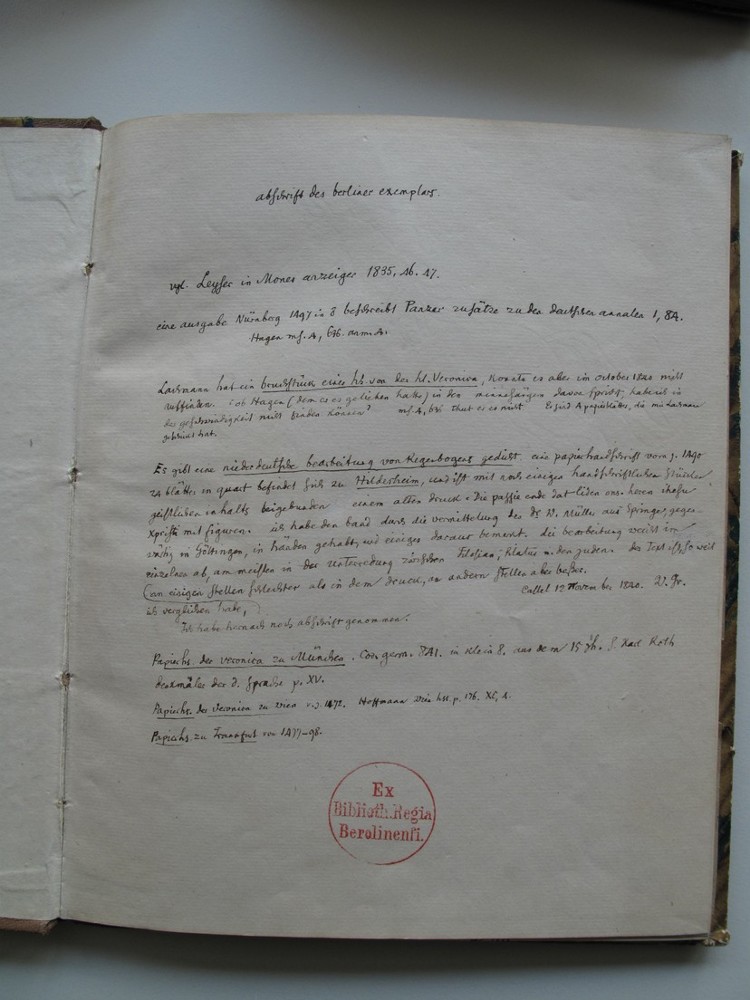 abschrift des berliner exemplars.
vgl. Leyser in Mones anzeiger 1835, 46. 47.
eine ausgabe Nürnberg 1497 in 8 beschreibt Panzer zusätze zu den deutschen annalen 1, 84.
Hagen mf. 4, 636. anm. 4.
Lachmann hat ein bruchstück einer hs. von der hl. Veronica, konnte es aber im october 1840 nicht
auffinden. (ob Hagen (dem er es geliehen hatte) in den minnesängern davon spricht, habe ich in
der geschwindigkeit nicht finden können? mf. 4, 636 thut er es nicht Es sind papierblätter, die mir Lachmann
geschenkt hat.
Es gibt eine niederdeutsche bearbeitung von Regenbogens gedicht. ein papierhandschrift vom j. 1490
24 blätter in quart befindet sich zu Hildesheim, und ist mit noch einigen handschriftlichen stücken
geistlichen inhalts beigebunden einem alten druck: die passie ende dat liden ons heren ihesu
xpristi mit figuren. ich habe den band durch die vermittelung des Dr W. Müller aus Springe, gegen-
wärtig in Göttingen, in händen gehabt, und einiges daraus bemerkt. die bearbeitung weicht im
einzelnen ab, am meisten in der unterredung zwischen Pilatus u. den juden. der text ist, so weit
(an einigen stellen schlechter als in dem druck, an andern stellen aber besser.
ich verglichen habe,) Cassel 12 November 1840. W. Gr.
Ich habe hernach noch abschrift genommen.
Papierhs. der veronica zu München. Cod. germ. 841. in klein 8. aus dem 15 Jh. s. Karl Roth
denkmäler der d. sprache p. XV.
Papierhs. der veronica zu wien v. j. 1472. Hoffmann wien. hss. p. 176. XC, 4.
Papierhs. zu Frankfurt von 1477–98.
Ex
Biblioth. Regia
Berolinensi.